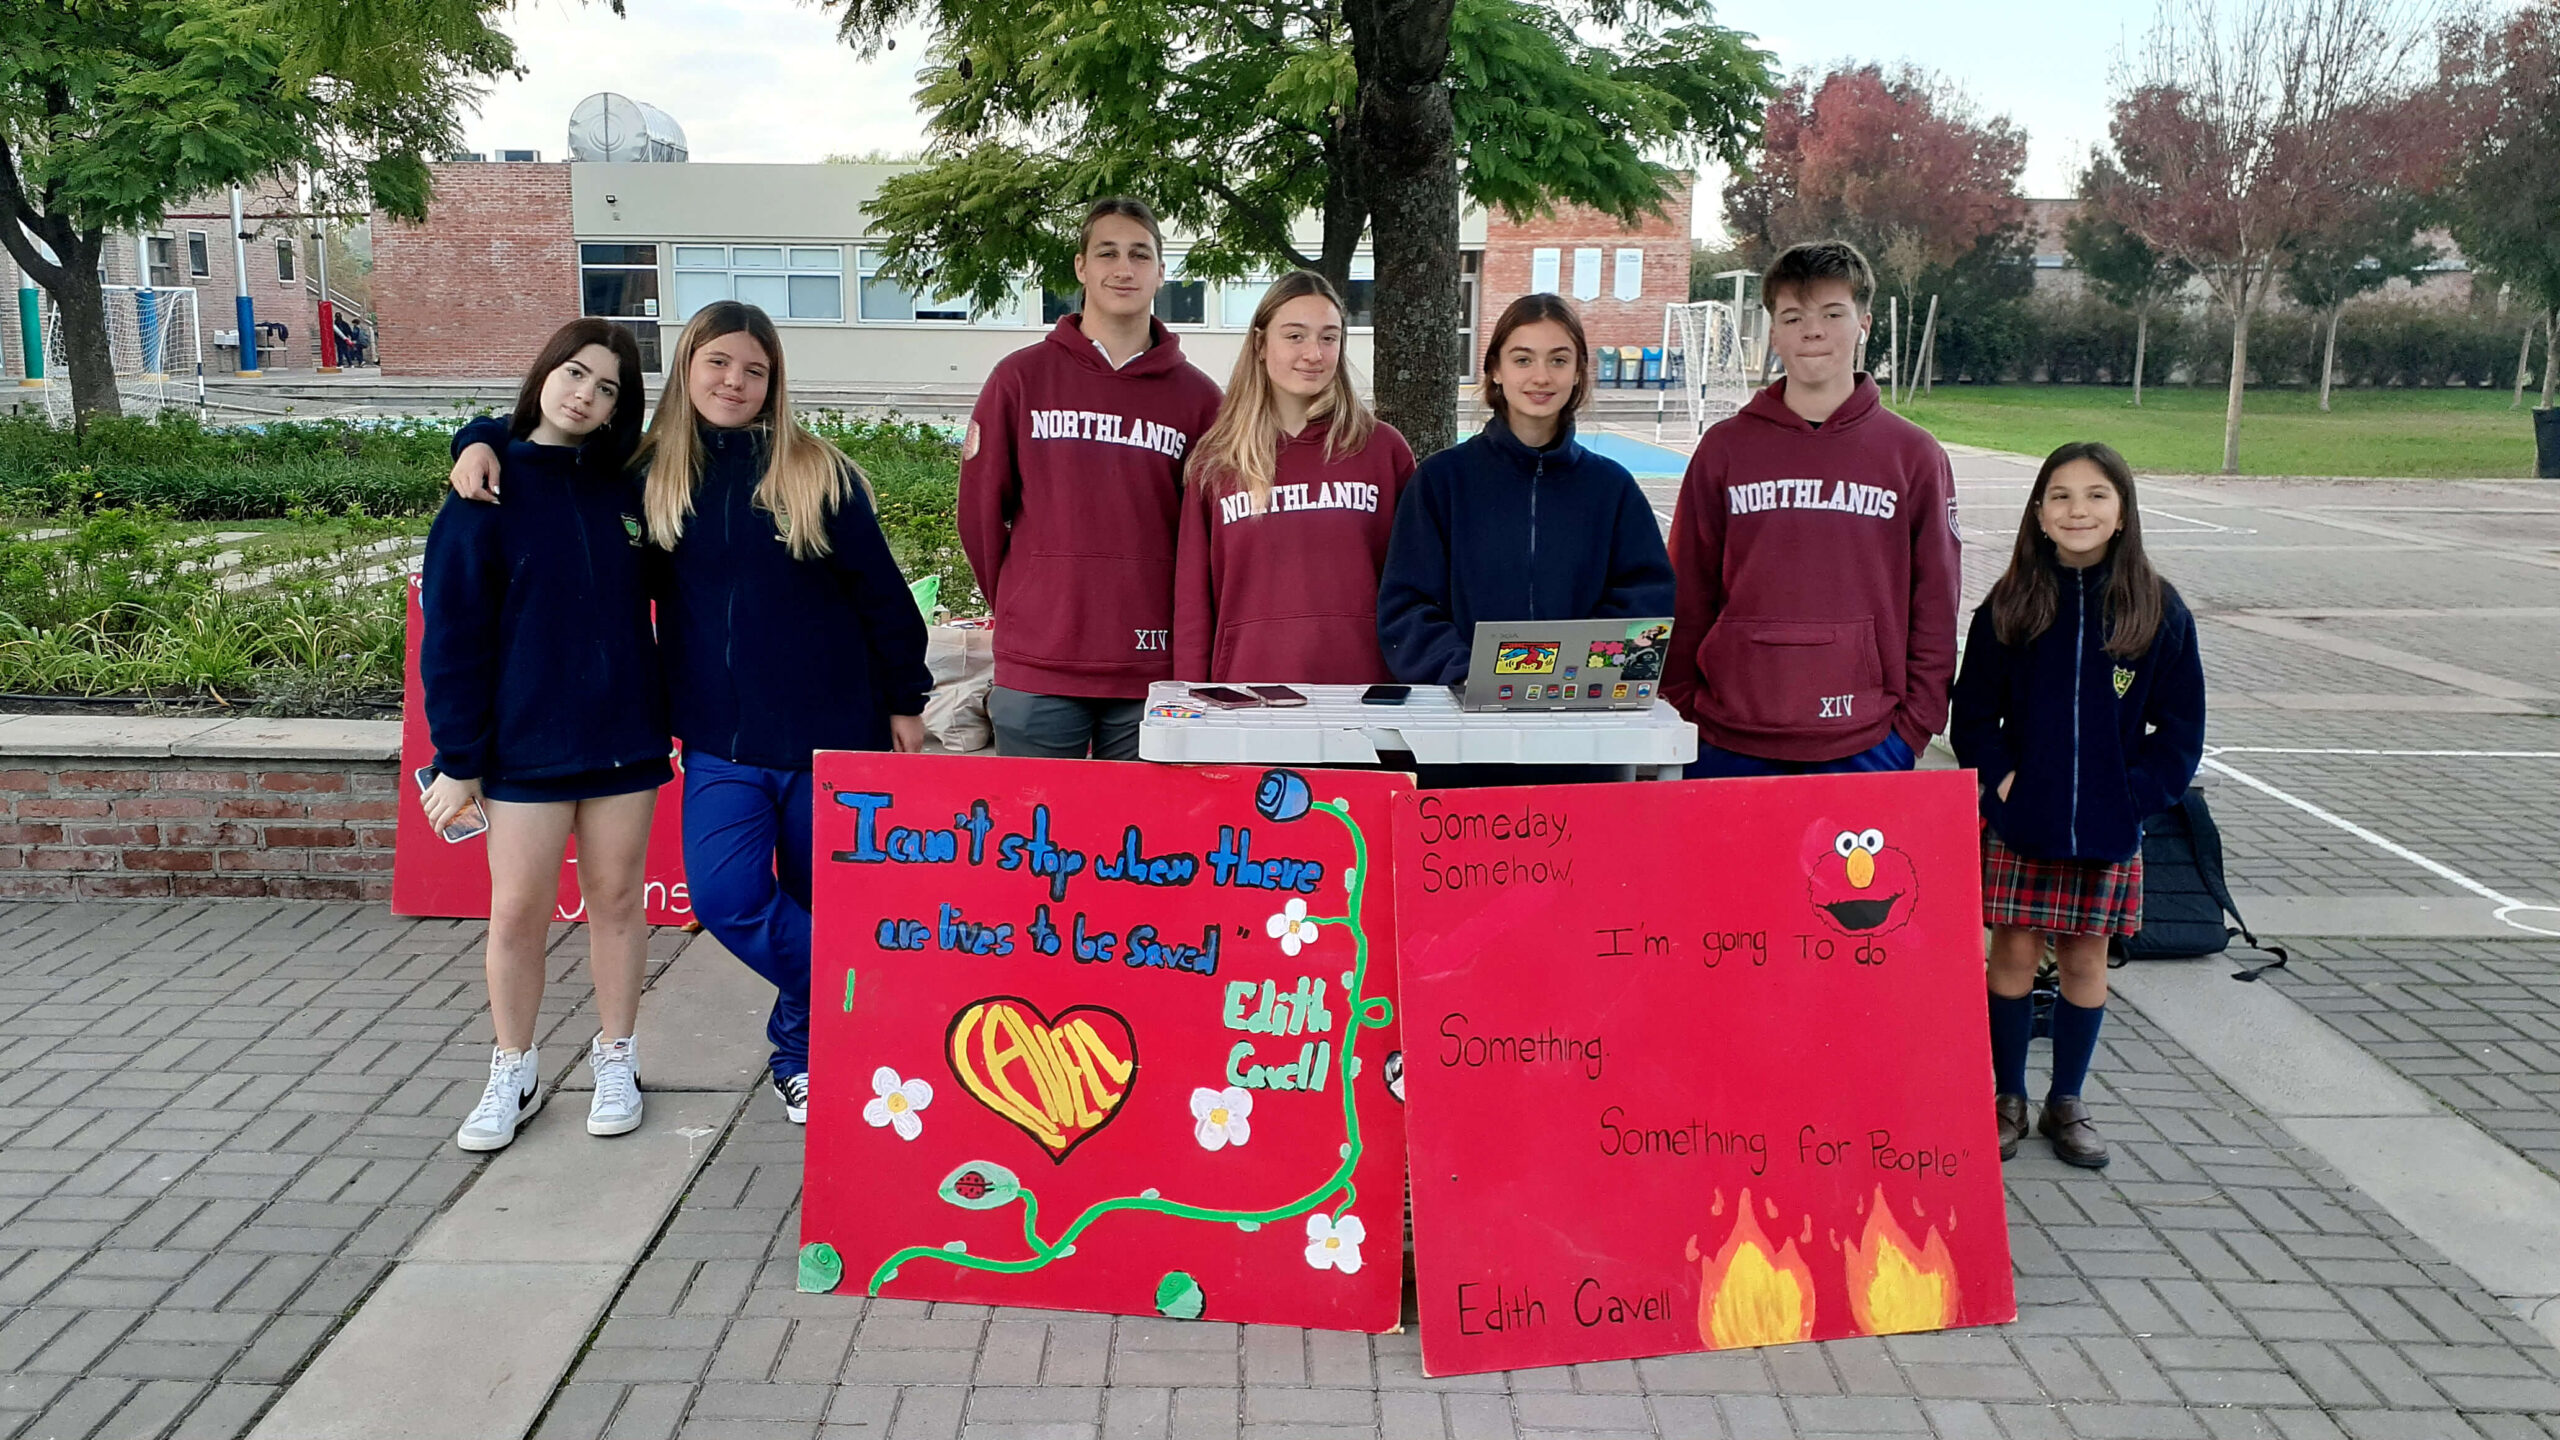 NORTHLANDS
NORTHLANDS
NORTHLANDS
XIV
XIV
"I can't stop when there
are lives to be saved"
Edith
Cavell
CAVELL
"Someday,
Somehow,
I'm going To do
Something.
Something for People"
Edith Cavell